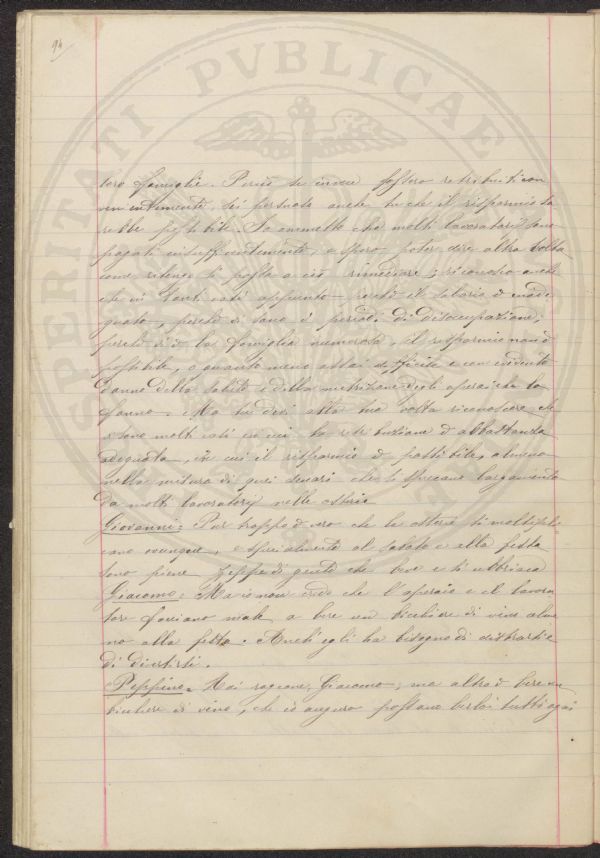 94
PROSPERITATI PVBLICAE
loro famiglie. Perciò se invece fossero retribuiti con
venientemente, sei persuaso anche tu che il risparmio sa
rebbe possibile. Io ammetto che molti lavoratori sono
pagati insufficientemente, e spero poter dire altra volta
come ritengo si possa a ciò rimediare; riconosco anche
che in tanti casi appunto perchè il salario è inade
guato, perchè vi sono i periodi di disoccupazione,
perchè vi è la famiglia numerosa, il risparmio non è
possibile, o quanto meno assai difficile e con evidente
danno della salute e della nutrizione degli operai che lo
fanno. Ma tu devi alla tua volta riconoscere che
vi sono molti casi in cui la retribuzione è abbastanza
adeguata, in cui il risparmio è possibile, almeno
nella misura di quei denari che si sprecano largamente
da molti lavoratori nelle osterie.
Giovanni: Pur troppo è vero che le osterie si moltipli
cano ovunque, e specialmente al sabato e alla festa
sono piene zeppe di gente che beve e si ubbriaca
Giacomo: Ma io non credo che l'operaio e il lavora
tore facciano male a bere un bicchiere di vino alme
no alla festa. Anch'egli ha bisogno di distrarsi e
di divertirsi.
Peppino. Hai ragione, Giacomo, ma altro è bere un
bicchiere di vino, che io auguro possano berlo tutti ogni